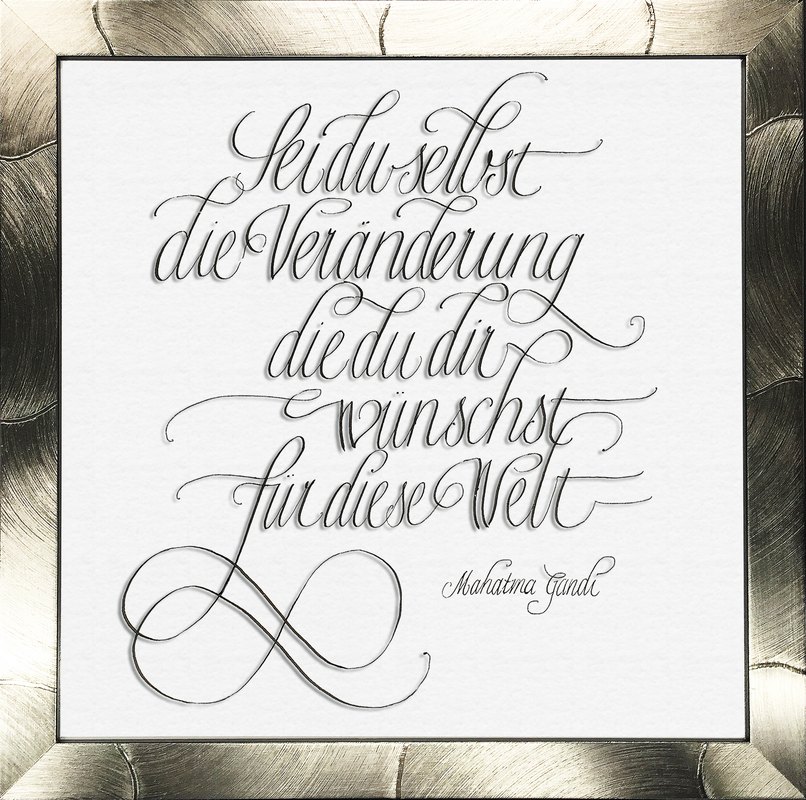 Sei du selbst
die Veränderung
die du dir
wünschst
für diese Welt
Mahatma Gandi